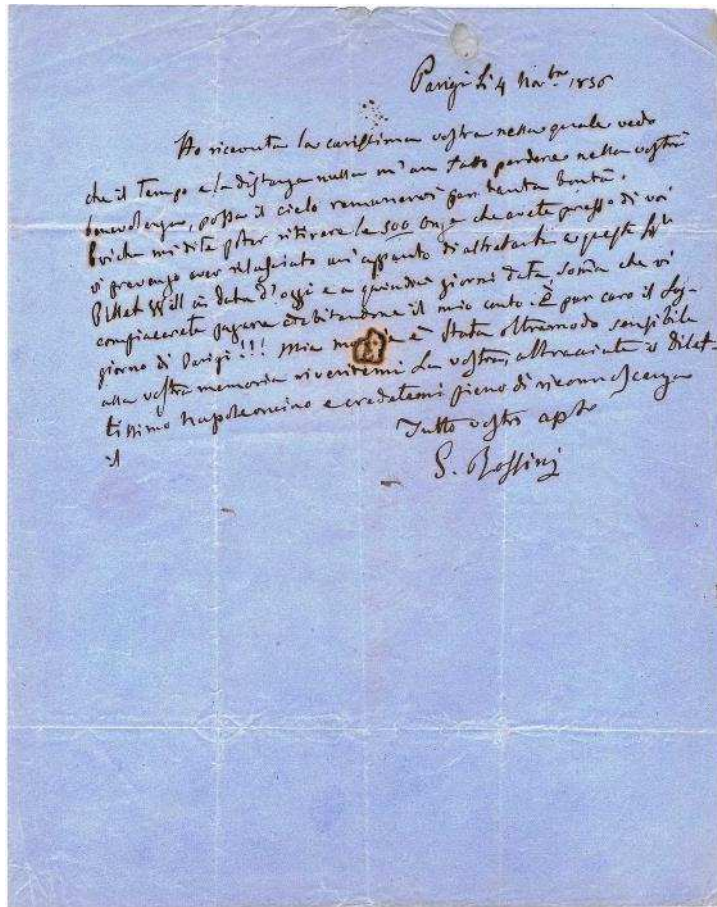 Parigi li 4 Nov.bre 1856
Ho ricevuta la carissima vostra nella quale vedo
che il Tempo e la distanza nulla m'an fatto perdere nella vostra
benevolenza, possa il cielo remunerarvi per tanta bontà.
Poiche mi dite poter ritirare le 500 Onze che avete presso di voi
vi prevengo aver rilasciato un'appunto di altretante a questi Sig.ri
Pillet Will in data d'oggi e a quindici giorni data soma che vi
compiacerete pagare e debitandone il mio conto. È pur caro il Sog-
giorno di Parigi!!! Mia è stata oltremodo sensibile
alla vostra memoria riveritemi La vostra, abbracciate il Dilet-
tissimo Napoleoncino e credetemi pieno di riconoscenza
il
Tutto vostro
G. Rossini